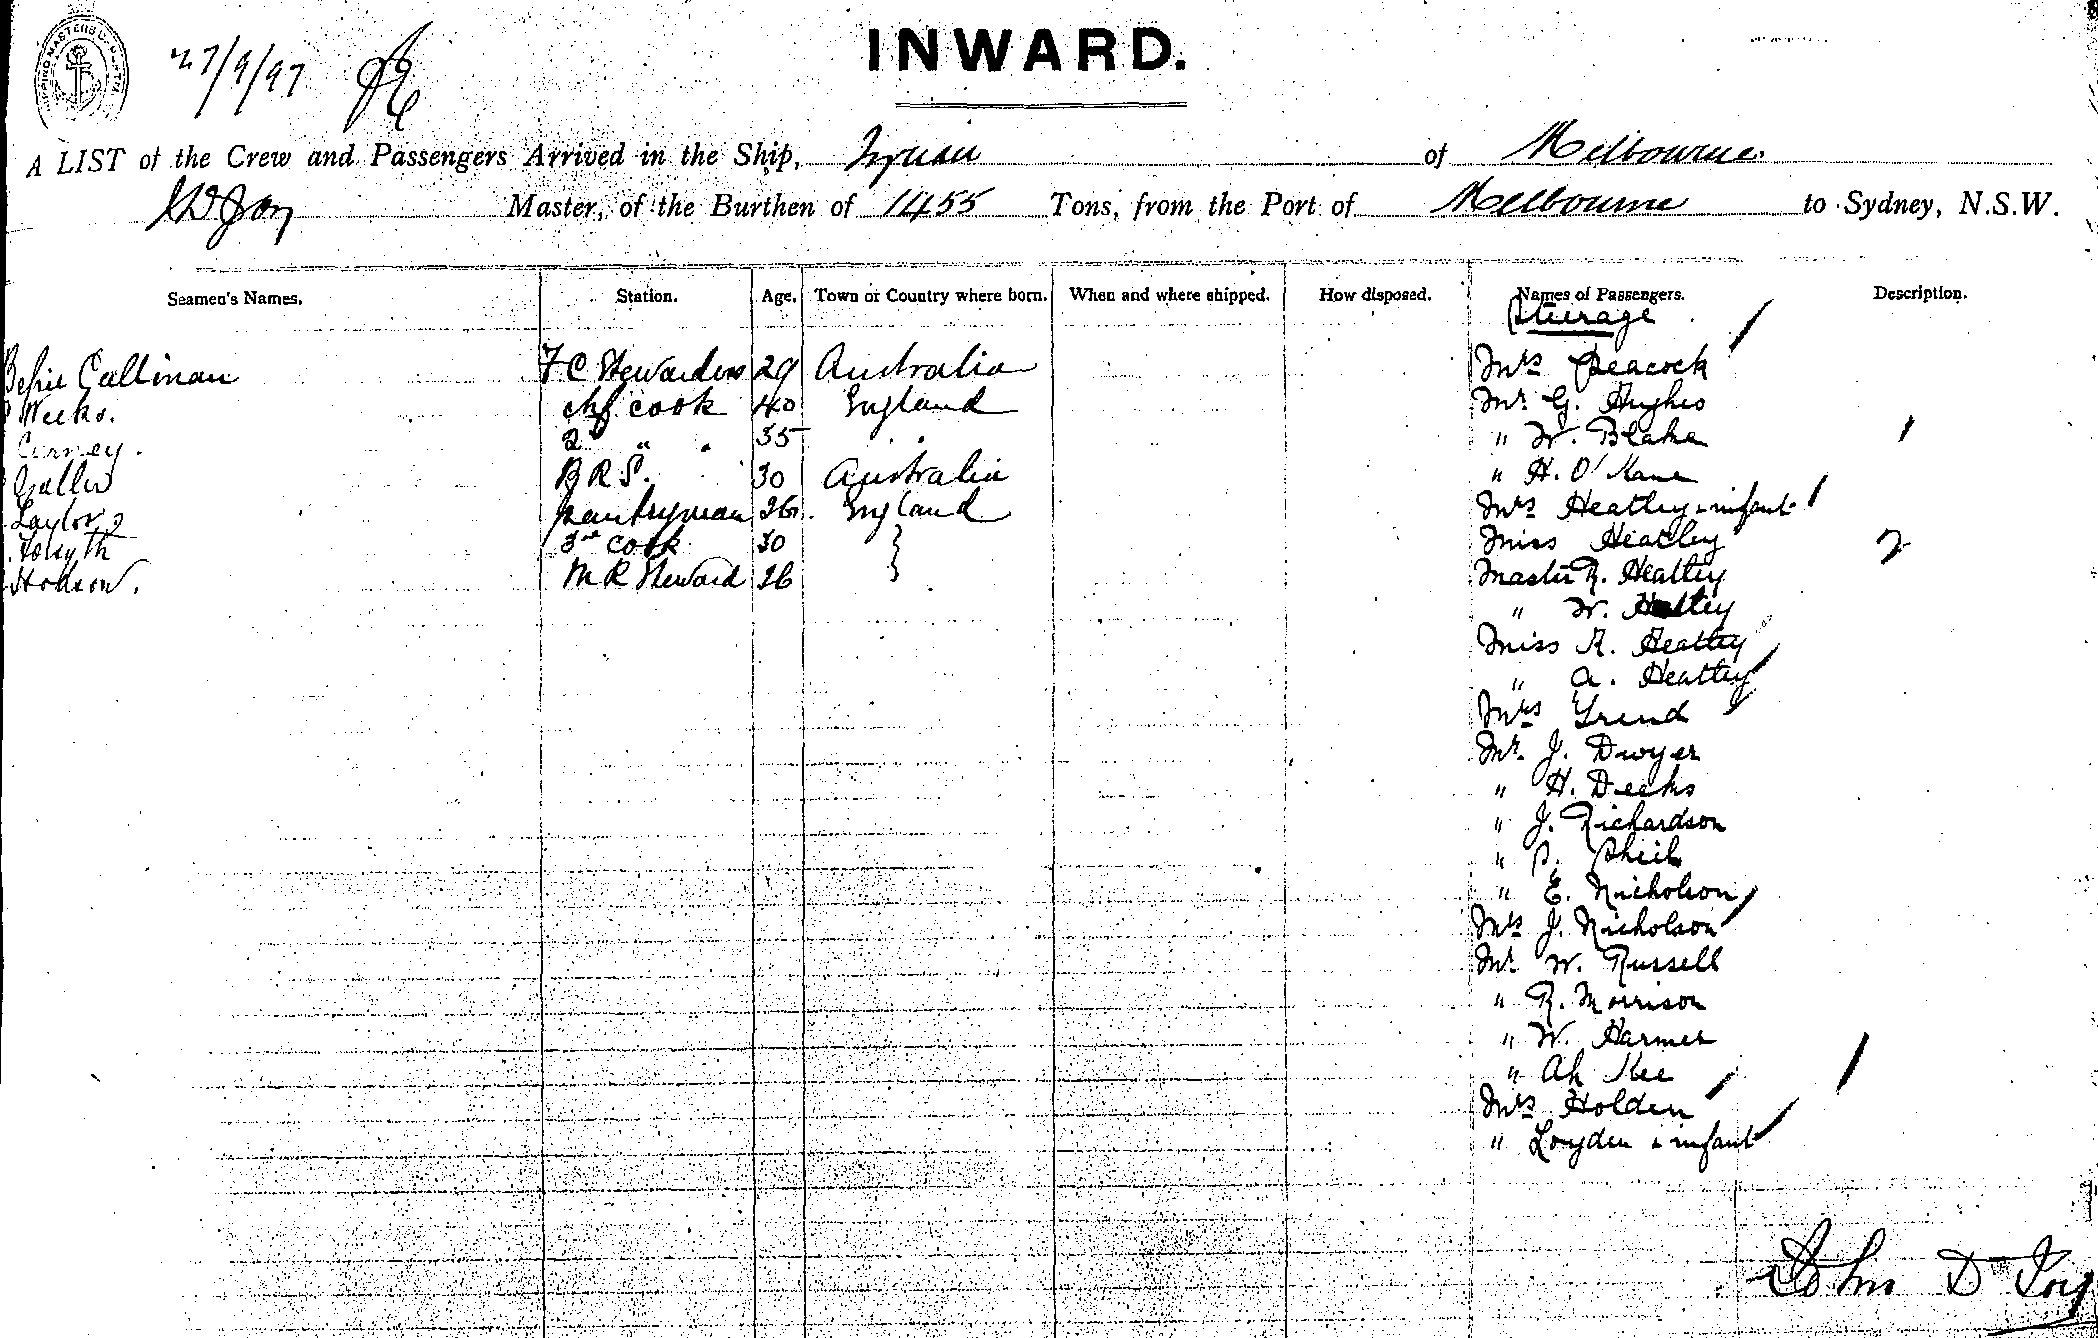 27/9/97
INWARD.
A LIST of the Crew and Passengers Arrived in the Ship, Tyrian of Melbourne.
J D Joy Master, of the Burthen of 1455 Tons, from the Port of Melbourne to Sydney, N.S.W.
Seamen's Names. Station. Age. Town or Country where born. When and where shipped. How disposed. Names of Passengers. Description.
Steerage
Callinan F C Stewardess 29 Australia Mrs Peacock
Weeks. chf cook 40 England Mr G. Hughes
2 " " 35 " W. Blake 1
B R S. 30 Australia " H. O'Kane
Taylor pantryman 26 England Mrs Heatley & infant
Forsyth 3rd cook 30 } Miss Heatley 2
Hobson. M R Steward 26 Master R. Heatley
" W. Heatley
Miss R. Heatley
" A. Heatley
Mrs Trend
Mr J. Dwyer
" H. Deeks
" J. Richardson
" P. Sheil
" E. Nicholson
Mrs J. Nicholson
Mr W. Russell
" R. Morrison
" W. Harmer
" Ah Kee
Mrs Holden
" Loyden & infant
John D Joy